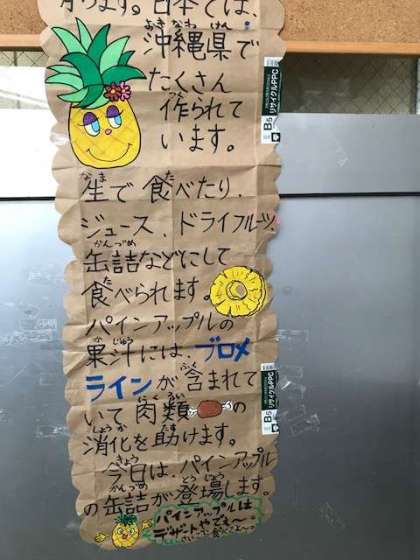 ります。日本では、
沖縄県で
おきなわけん
たくさん
作られて
つく
います。
リサイクルPPC
B5
生で食べたり、
なま た
ジュース、ドライフルーツ、
缶詰などにして
かんづめ
食べられます。
た
パインアップルの
果汁には、ブロメ
かじゅう
ラインが含まれて
ふく
いて肉類の
にくるい
リサイクルPPC
B5
消化を助けます。
しょうか たす
今日は、パインアップル
きょう
の缶詰が登場します。
かんづめ とうじょう
パインアップルは
デザートやでぇ〜